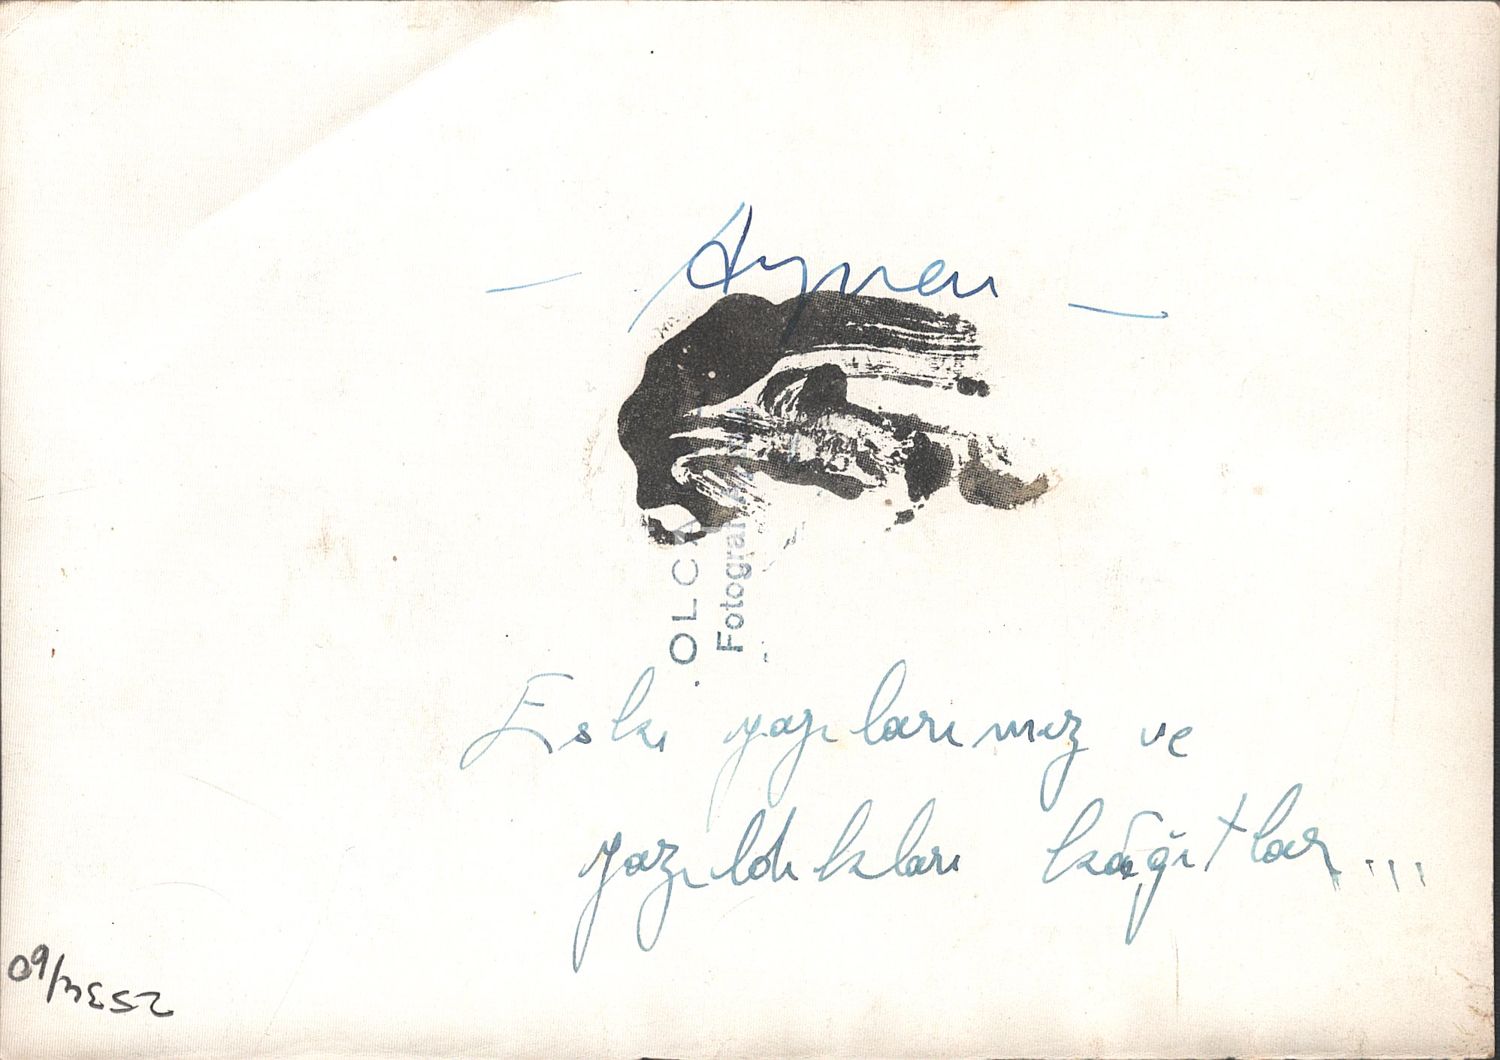 — Aynen —
OLCA
Fotoğraf
Eski yazılarımız ve
yazıldıkları kâğıtlar...
2534/60